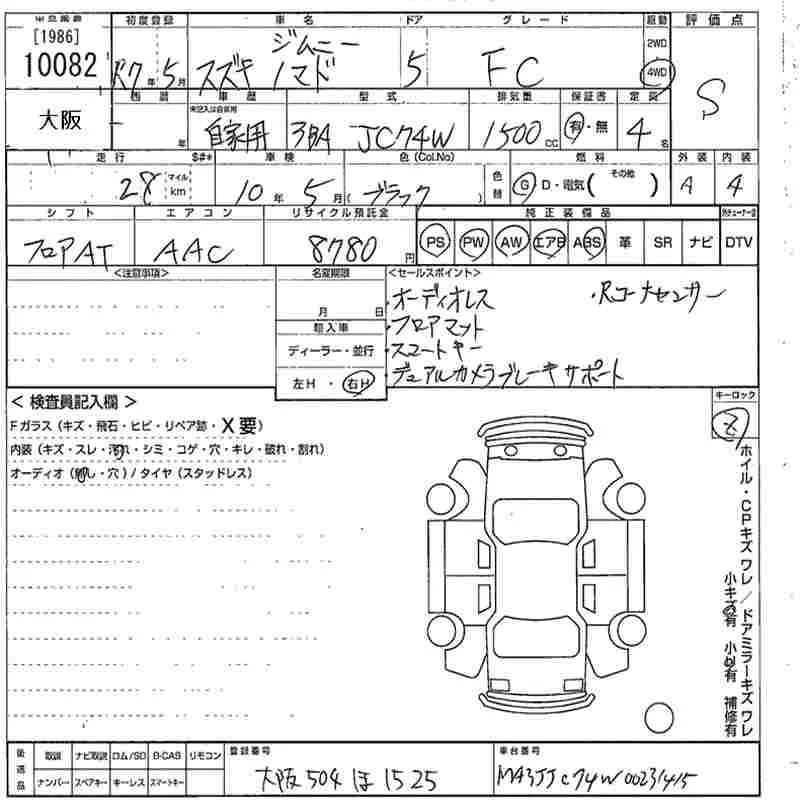 車両番号 初度登録 車名 ドア グレード 駆動 評価点
[1986]
10082
R7年5月 スズキ ジムニーノマド 5 FC 2WD 4WD S
大阪
西暦 車歴 型式 排気量 保証書 定員
未記入は自家用
年 自家用 3BA JC74W 1500cc 有・無 4名
走行 $#* 車検 色(Col.No) 燃料 外装 内装
28 マイル km 10年5月 (ブラック) 色替 G D・電気( その他 ) A 4
シフト エアコン リサイクル預託金 純正装備品
フロアAT AAC 8780円 PS PW AW エアB ABS 革 SR ナビ DTV
<注意事項> 名変期限 <セールスポイント>
月 日
・オーディオレス ・Rコーナセンサー
・フロアマット
・スマートキー
・デュアルカメラブレーキサポート
輸入車
ディーラー・並行
左H・右H
<検査員記入欄>
Fガラス(キズ・飛石・ヒビ・リペア跡・X要)
内装(キズ・スレ・汚れ・シミ・コゲ・穴・キレ・破れ・割れ)
オーディオ(無し・穴)/タイヤ(スタッドレス)
キーロック
ホイル・CPキズ ワレ/ドアミラーキズ ワレ
小キズ有 小凹有 補修有
後送品 取説 ナビ取説 ロム/SD B-CAS リモコン
ナンバー スペアキー キーレス スマートキー
登録番号 大阪 504 ほ 1525
車台番号 MA3JJC74W00231415